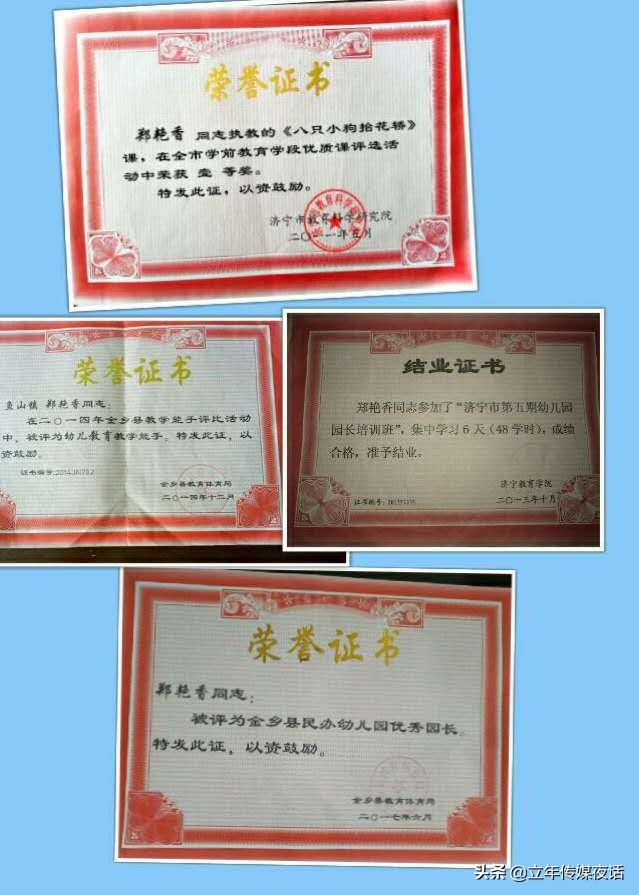 荣誉证书
郑艳香 同志执教的《八只小狗抬花轿》
课，在全市学前教育学段优质课评选活
动中荣获 壹 等奖。
特发此证，以资鼓励。
济宁市教育科学研究院
二〇一一年五月
荣誉证书
鱼山镇 郑艳香同志：
在二〇一四年金乡县教学能手评比活动
中，被评为幼儿教育教学能手，特发此证，以
资鼓励。
证书编号:
金乡县教育体育局
二〇一四年十二月
结业证书
郑艳香同志参加了“济宁市第五期幼儿园
园长培训班”，集中学习6天（48学时），成绩
合格，准予结业。
济宁教育学院
证书编号:
二〇一三年十月
荣誉证书
郑艳香同志：
被评为金乡县民办幼儿园优秀园长。
特发此证，以资鼓励。
金乡县教育体育局
二〇一七年六月
头条 @立年传媒夜话